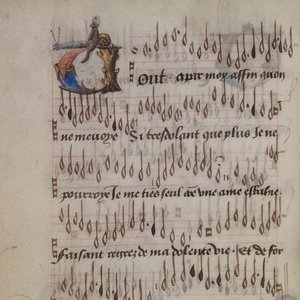 Tout a par moy affin quon
ne me voye Si tresdolant que plus Je ne
pourroye Je me tiens seul co[m]me une ame esbahie
Faisant regres de ma dolente vie Et de for